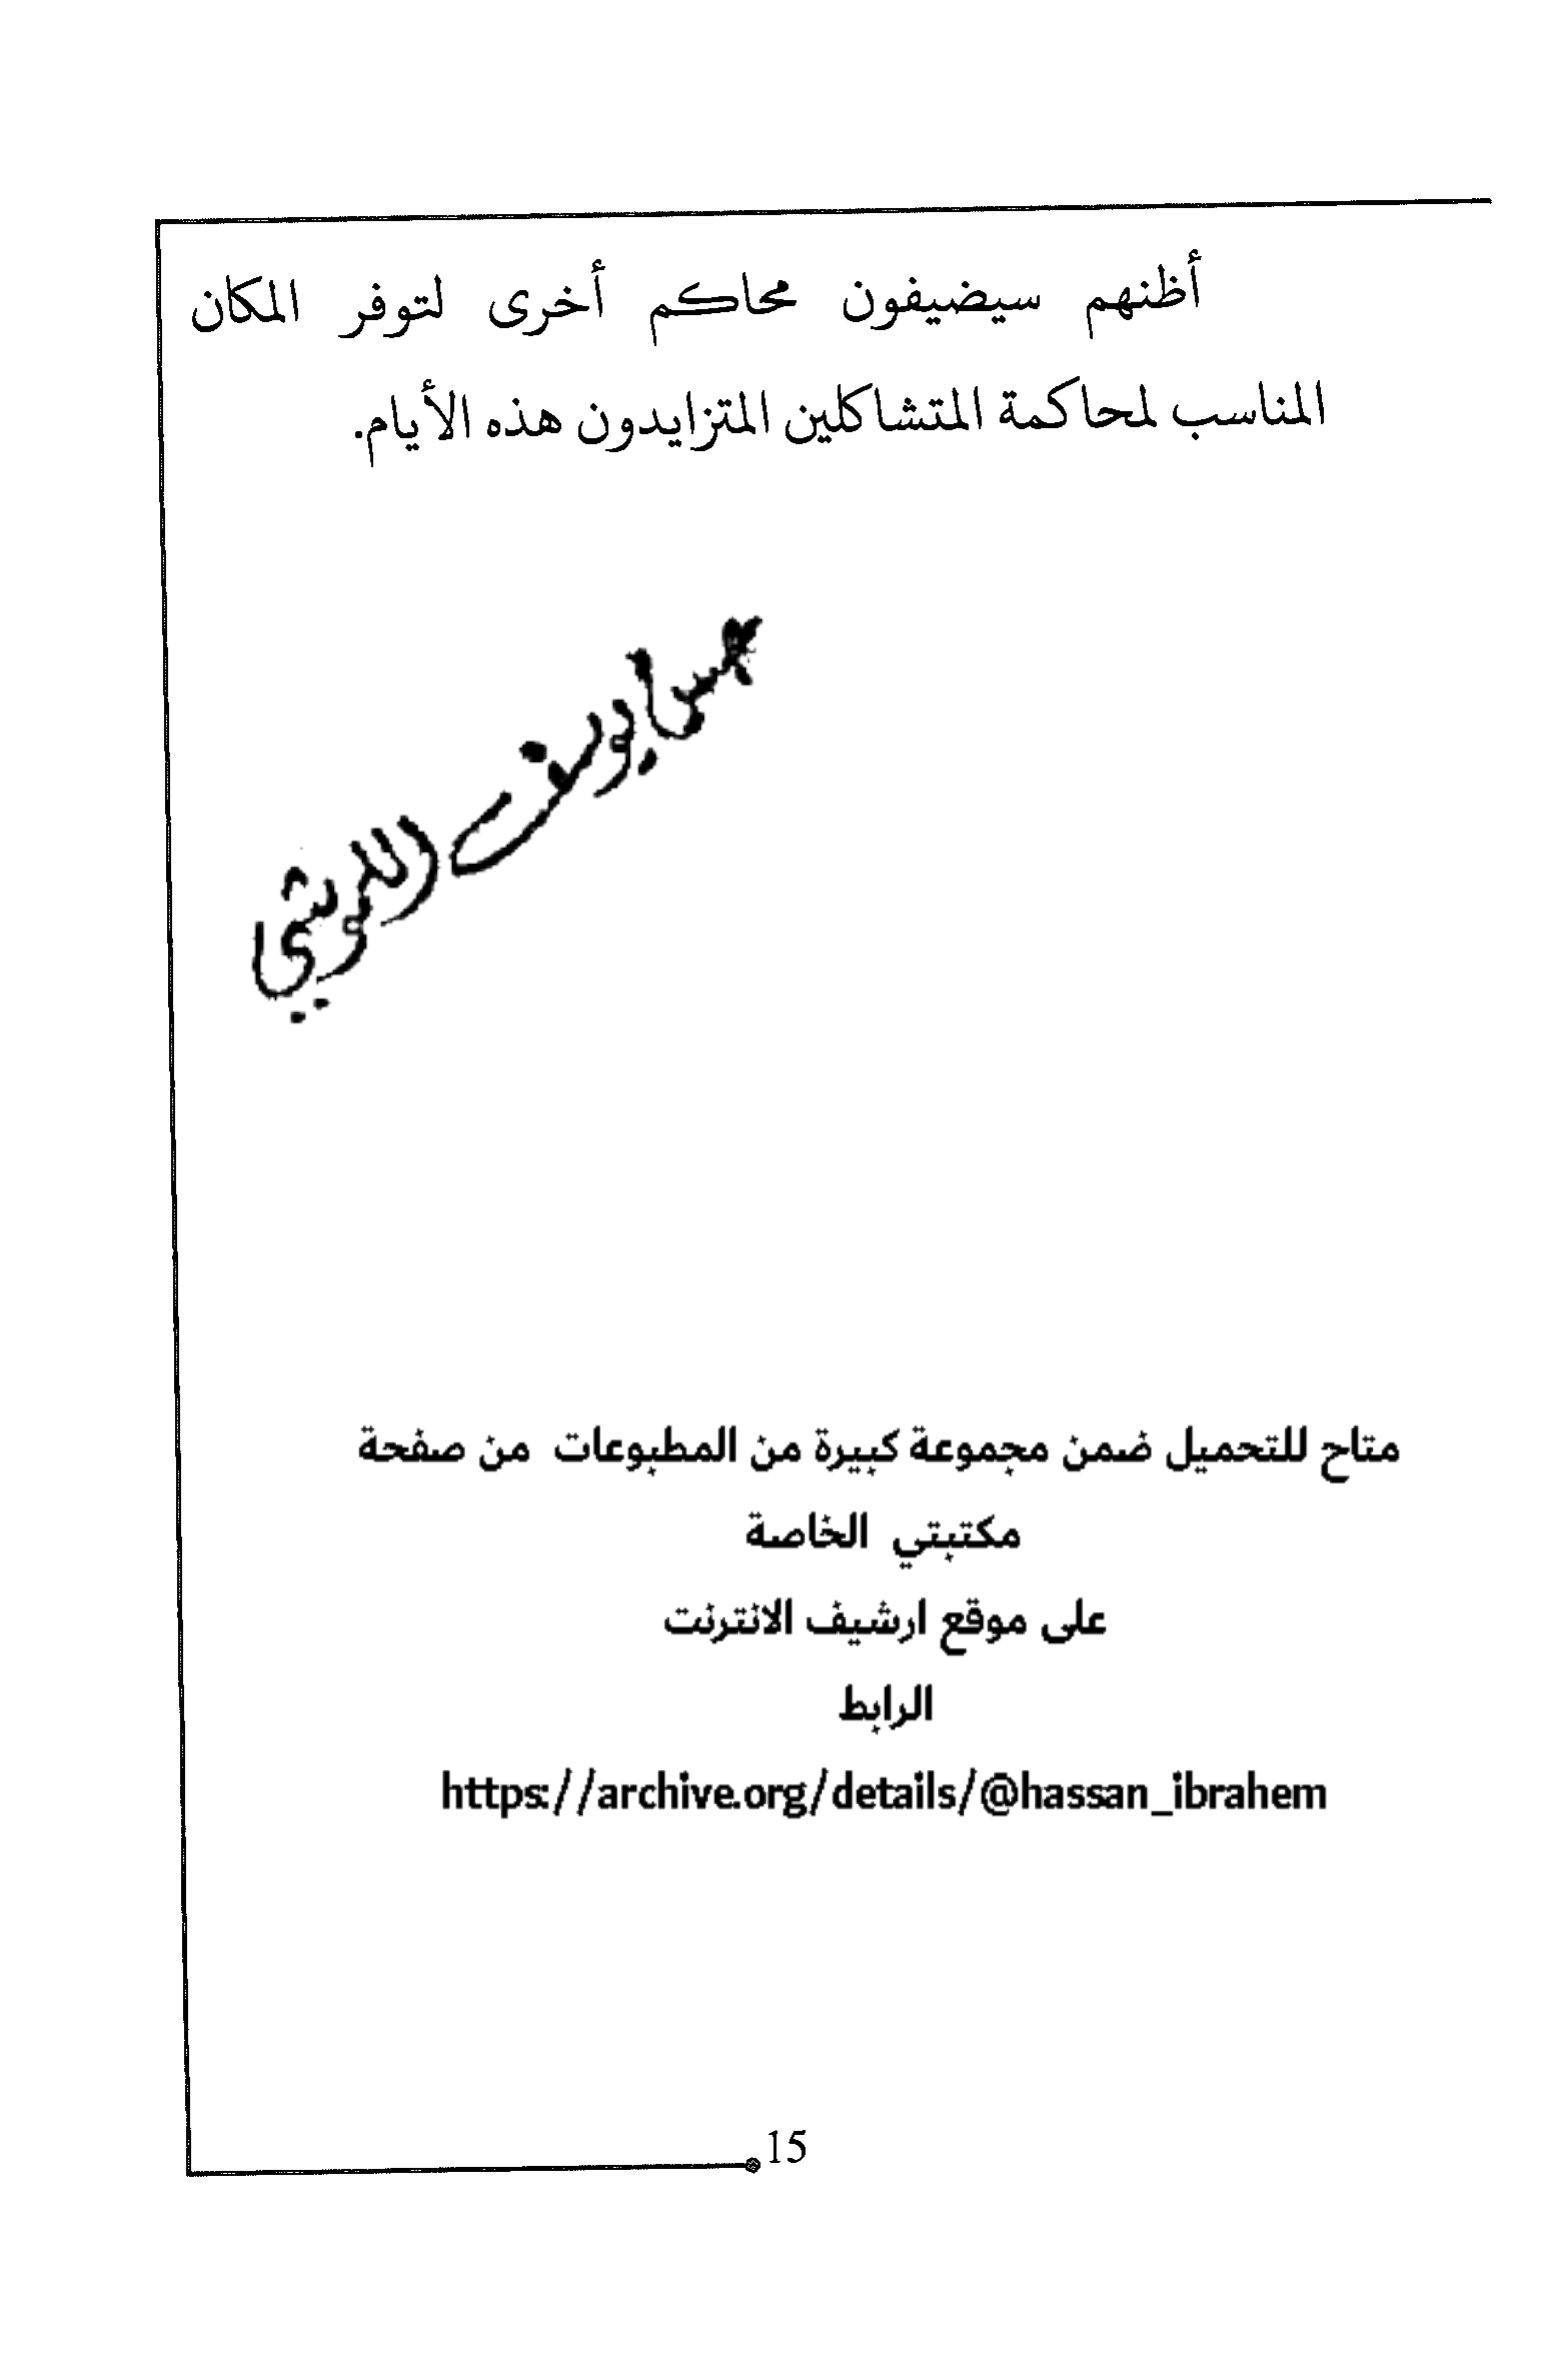 أظنهم سيضيفون محاكم أخرى لتوفر المكان
المناسب لمحاكمة المتشاكلين المتزايدون هذه الأيام.
يوسف
متاح للتحميل ضمن مجموعة كبيرة من المطبوعات من صفحة
مكتبتي الخاصة
على موقع ارشيف الانترنت
الرابط
https://archive.org/details/@hassan_ibrahem
15